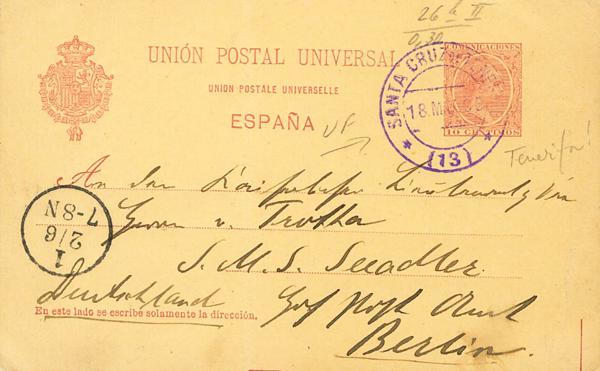 26 II
0,30
UNIÓN POSTAL UNIVERSAL
COMUNICACIONES
UNION POSTALE UNIVERSELLE
ESPAÑA
SANTA CRUZ
18.M
(13)
10 CENTIMOS
Tenerifa!
An den Kaiserlichen
Herrn v. Trotha
S. M. S. Seeadler
Deutschland Hof Post Amt
En este lado se escribe solamente la dirección.
Berlin
1
2/6
7-8N